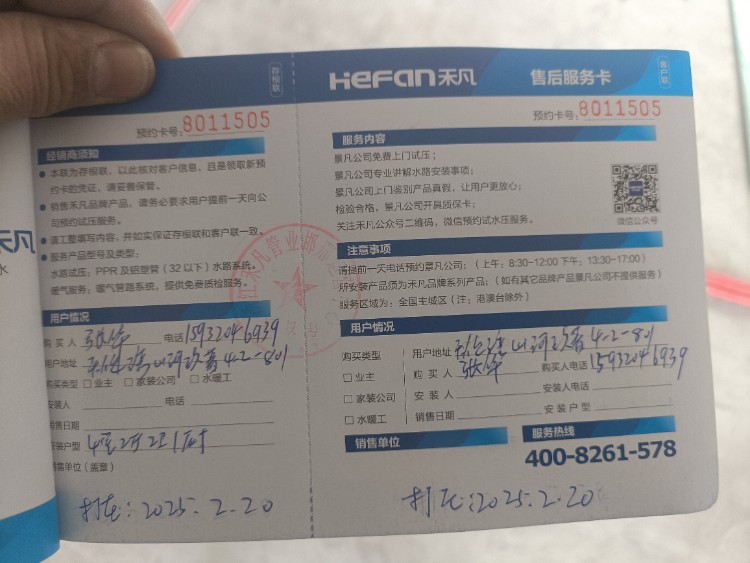 存根联
预约卡号:8011505
经销商须知
本联为存根联,以此核对客户信息,且是领取新预
约卡的凭证,请妥善保管。
销售禾凡品牌产品,请务必要求用户提前一天向公
司预约试压服务。
请工整填写内容,并如实保证存根联和客户联一致。
服务产品型号及类型:
水路试压:PPR及铝塑管(32以下)水路系统。
暖气服务:暖气管路系统,提供免费质检服务。
用户情况
购买人 张华 电话 15932046939
用户地址 山河 4-2-801
购买类型 □业主 □家装公司 □水暖工
安装人 电话
销售日期
安装户型 2厅2卫1厨
销售单位(盖章)
打压:2025.2.20
禾凡
水
HeFan禾凡 售后服务卡
客户联
预约卡号:8011505
服务内容
景凡公司免费上门试压;
景凡公司专业讲解水路安装事项;
景凡公司上门鉴别产品真假,让用户更放心;
检验合格,景凡公司开具质保卡;
关注禾凡公众号二维码,微信预约试水压服务。
微信公众号
注意事项
请提前一天电话预约景凡公司:(上午:8:30-12:00 下午:13:30-17:00)
所安装产品须为禾凡品牌系列产品;(如有其它品牌产品景凡公司不提供服务)
服务区域为:全国主城区(注:港澳台除外)
用户情况
购买类型 用户地址 山河 4-2-801
□业主 购买人 张华 购买人电话 15932046939
□家装公司 安装人 安装人电话
□水暖工 销售日期 安装户型
销售单位 服务热线
400-8261-578
打压:2025.2.20